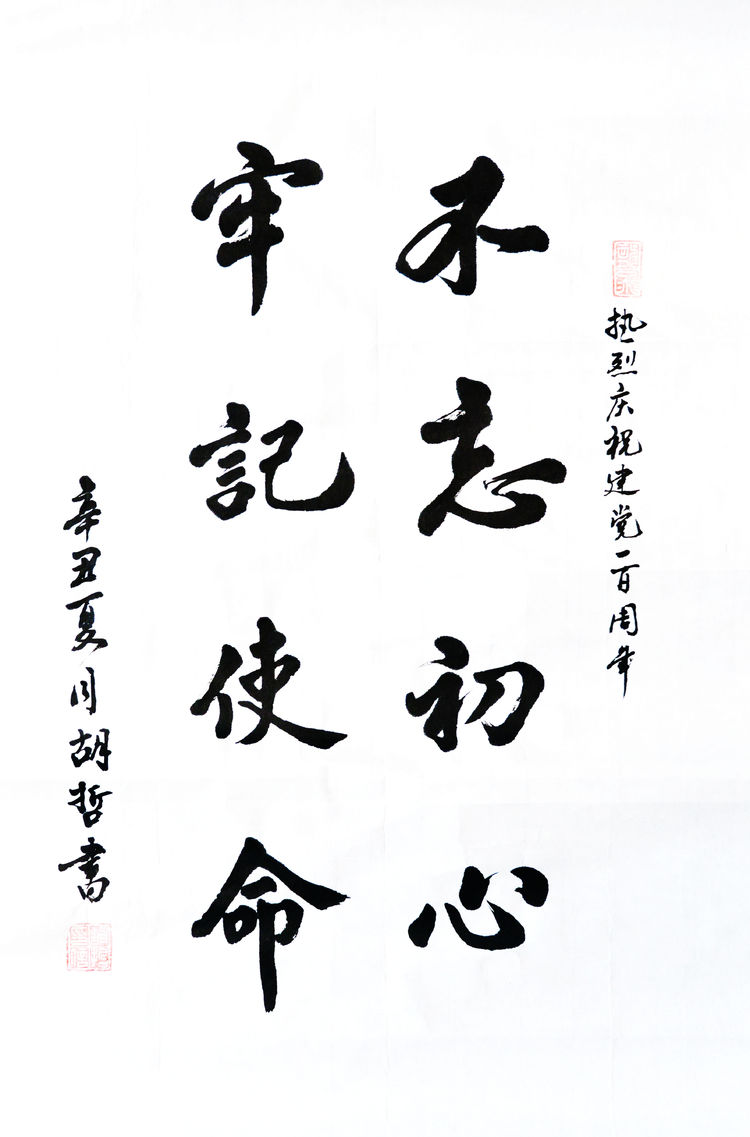 热烈庆祝建党一百周年
不忘初心
牢記使命
辛丑夏月胡哲書